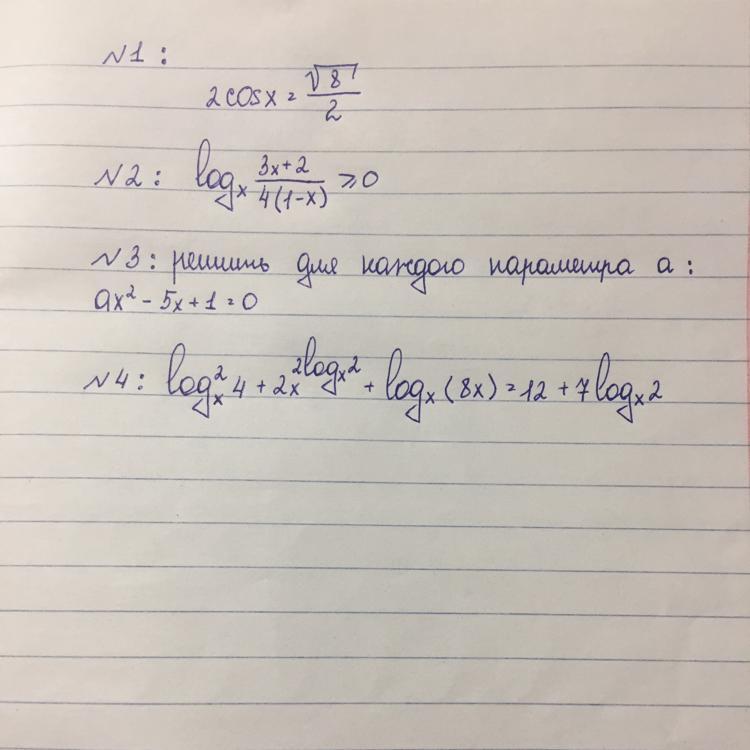 N1:
2cosx = √8/2
N2: logₓ (3x+2)/(4(1-x)) ⩾ 0
N3: решить для каждого параметра a:
ax² - 5x + 1 = 0
N4: log²ₓ 4 + 2x^(2logₓ2) + logₓ (8x) = 12 + 7logₓ2